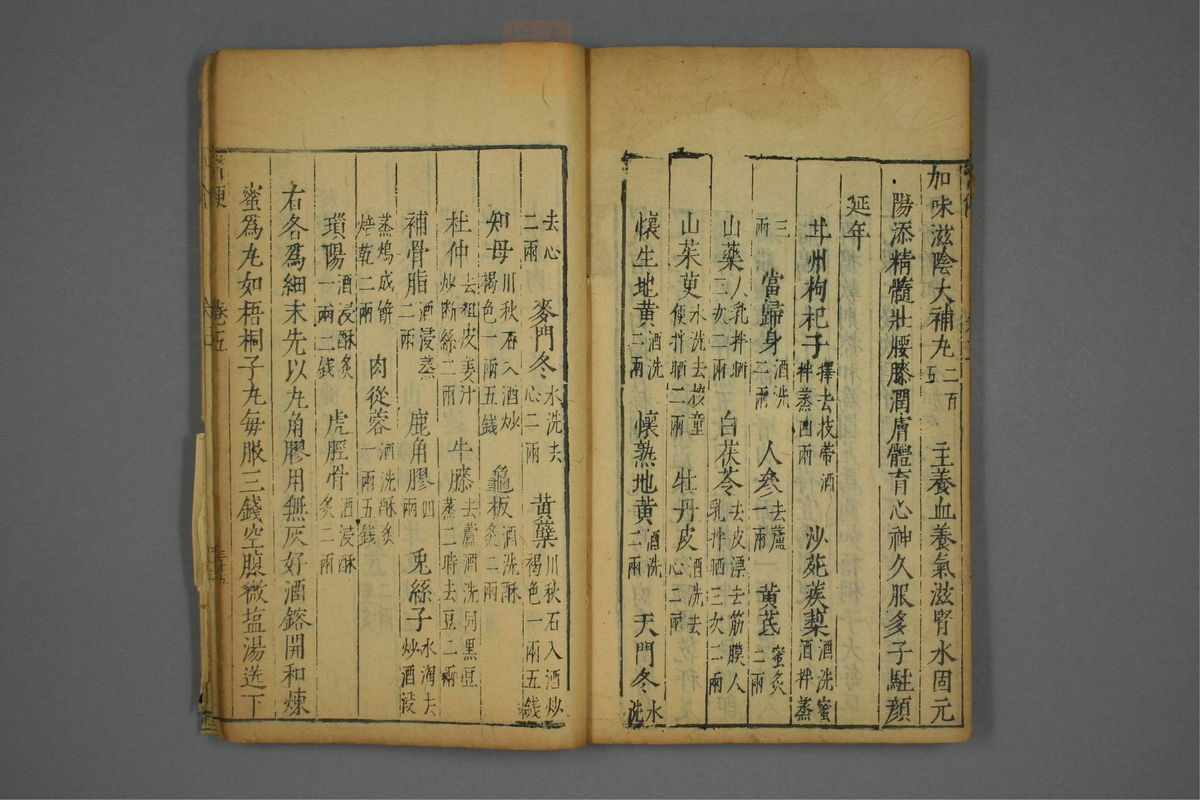 加味滋陰大補丸二百五　主養血養氣滋腎水固元
陽添精髓壯腰膝潤膚體育心神久服多子駐顔
延年
甘州枸杞子擇去枝蒂酒拌蒸四兩　沙苑蒺藜酒洗蜜酒拌蒸
三兩　當歸身酒洗二兩　人參去蘆一兩　黃芪蜜炙二兩
山藥人乳拌晒三次二兩　白茯苓去皮漂去筋膜人乳拌晒三次二兩
山茱萸水洗去核童便拌晒二兩　牡丹皮酒洗去心二兩
懷生地黃酒洗二兩　懷熟地黃酒洗二兩　天門冬水洗
去心二兩　麥門冬水洗去心二兩　黃蘗川秋石入酒炒褐色一兩五錢
知母川秋石入酒炒褐色一兩五錢　龜板酒洗酥炙二兩
杜仲去粗皮姜汁炒斷絲二兩　牛膝去蘆酒洗同黑豆蒸二時去豆二兩
補骨脂酒浸蒸二兩　鹿角膠四兩　兎絲子水淘去炒酒浸
蒸搗成餅焙乾二兩　肉從蓉酒洗酥炙一兩五錢
瑣陽酒浸酥炙一兩二錢　虎脛骨酒浸酥炙二兩
右各爲細末先以九角膠用無灰好酒鎔開和煉
蜜爲丸如梧桐子丸每服三錢空腹微塩湯送下
卷之五